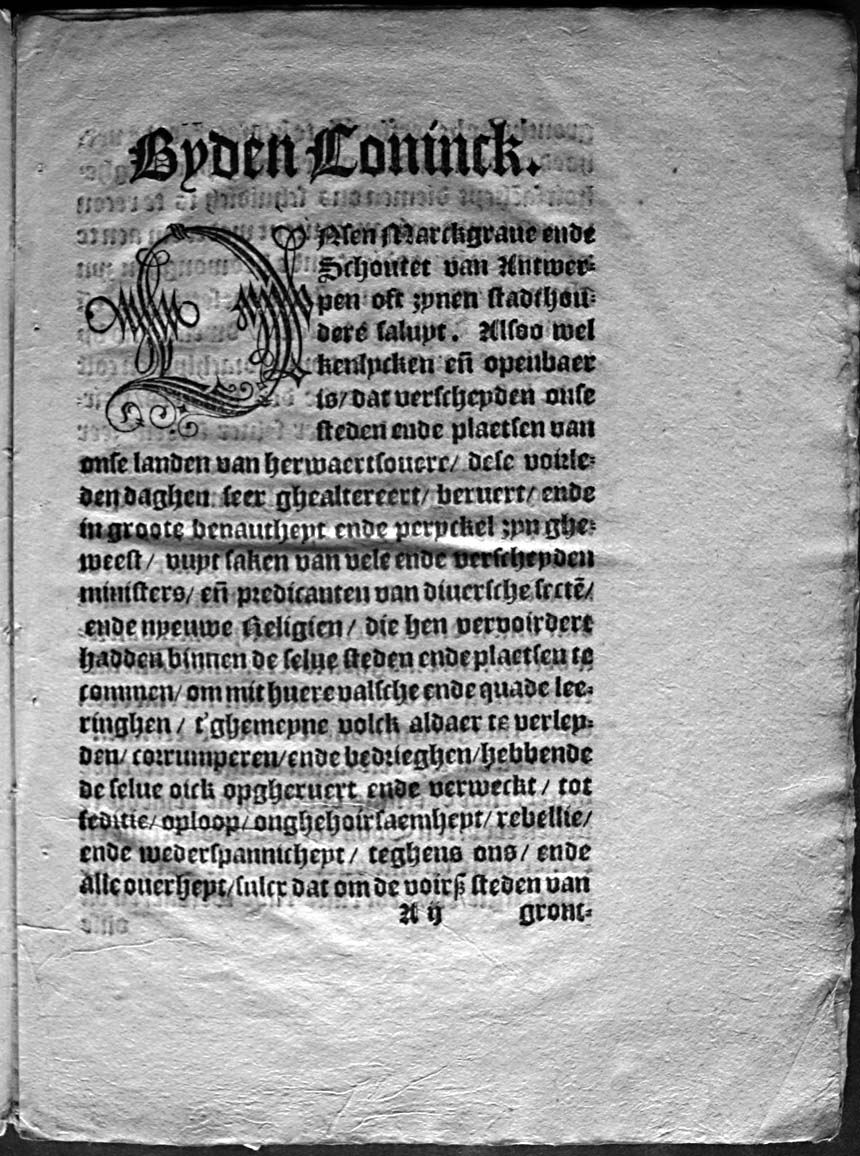 Byden Coninck.
ONsen Marckgraue ende
Schoutet van Antwer-
pen oft zynen stadthou-
ders saluyt. Alsoo wel
kenlycken eñ openbaer
is/ dat verscheyden onse
steden ende plaetsen van
onse landen van herwaertsouere/ dese voirle-
den daghen seer ghealtereert/ beruert/ ende
in groote benautheyt ende peryckel zyn ghe-
weest/ vuyt saken van vele ende verscheyden
ministers/ eñ predicanten van diuersche sectē/
ende nyeuwe Religien/ die hen vervoirdert
hadden binnen de selue steden ende plaetsen te
commen/ om mit huere valsche ende quade lee-
ringhen/ t'ghemeyne volck aldaer te verley-
den/ corrumperen/ ende bedrieghen/ hebbende
de selue oick opgheruert ende verweckt/ tot
seditie/ oploop/ onghehoirsaemheyt/ rebellie/
ende wederspannicheyt/ teghens ons/ ende
alle ouerheyt/ sulcx dat om de voirß steden van
A ij gront-